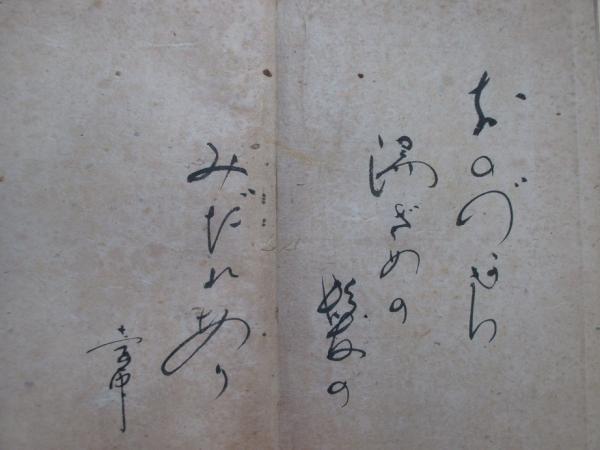 おのづから
湯ざめの
髪の
みだれあり